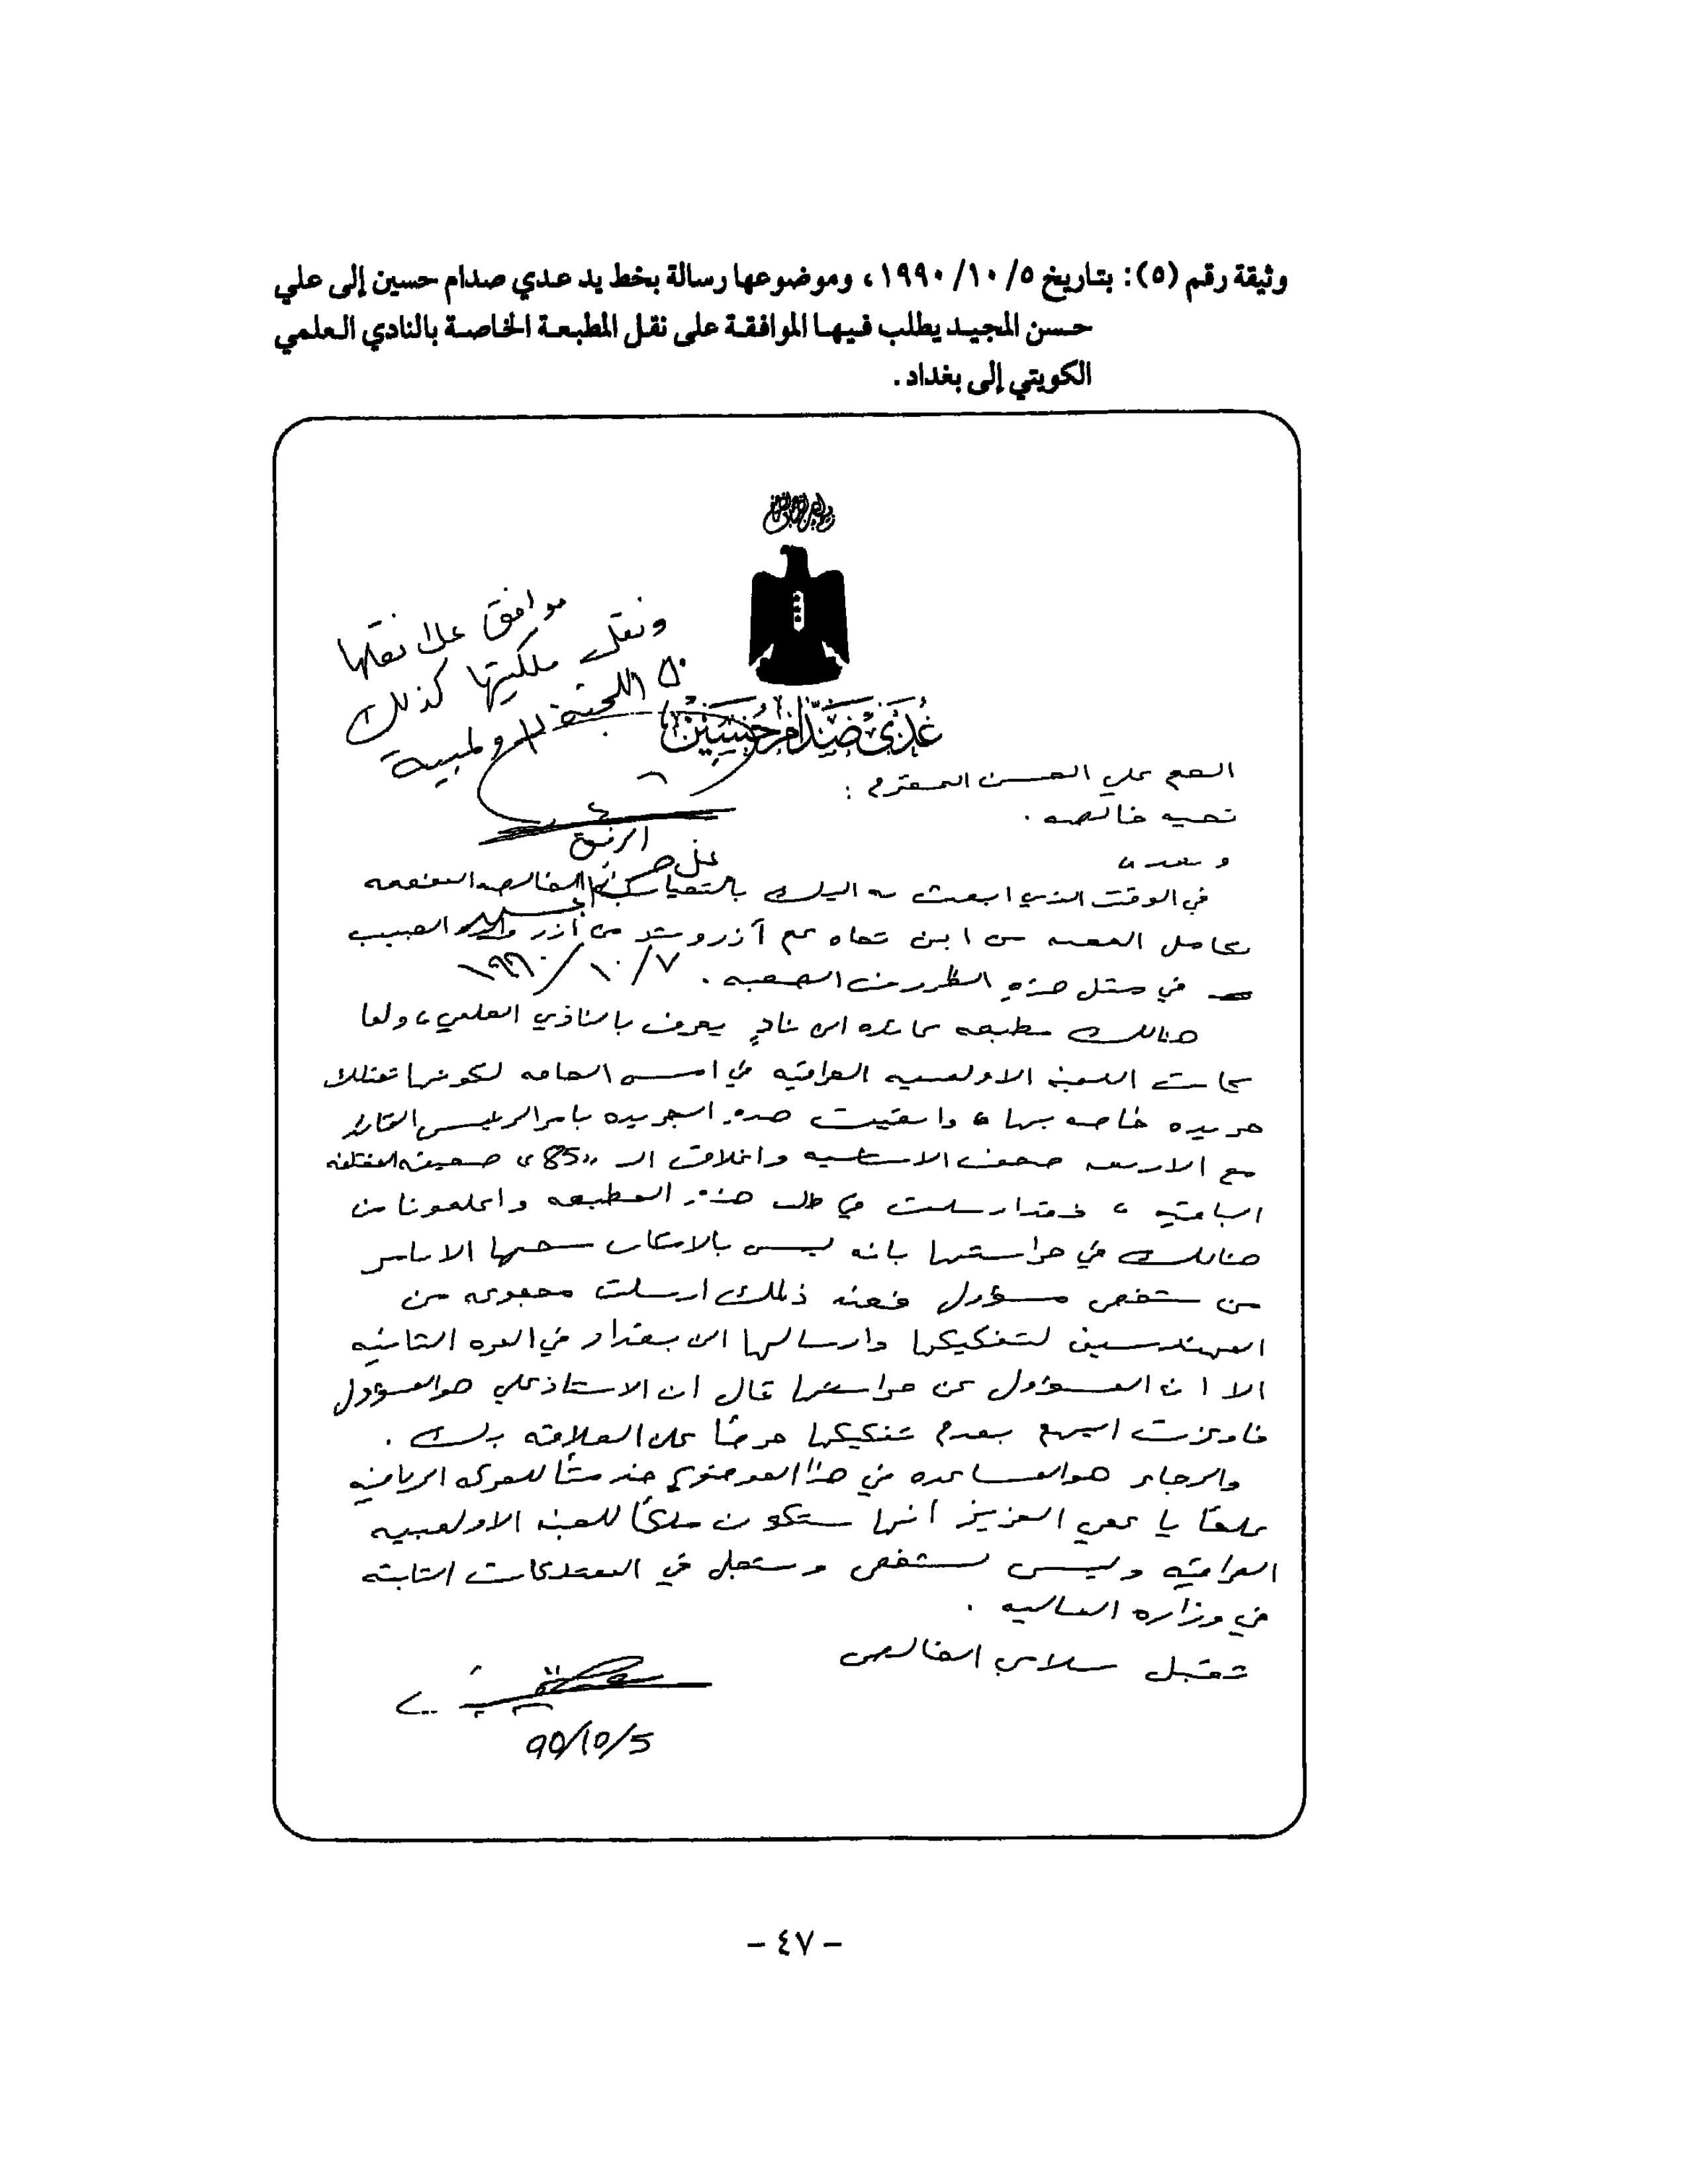 وثيقة رقم (٥): بتاريخ ٥/ ١٠/ ١٩٩٠، وموضوعها رسالة بخط يد عدي صدام حسين إلى علي
حسن المجيد يطلب فيها الموافقة على نقل المطبعة الخاصة بالنادي العلمي
الكويتي إلى بغداد.
موافق على نقلها
ونقل ملكيتها كذلك
الى اللجنة الاولمبية
عُدَيْ صَدَّام حُسَيْن
العم علي الحسن المحترم :
تحيه خالصه .
وبعد ،
الرفيق
علي حسن المجيد
١٩٩٠/١٠/٧
في الوقت الذي ابعث به اليك بالتحيات الخالصه المفعمه
بكامل المحبه من ابن تجاه عم آزر وشد من أزر والده الحبيب
في مثل هذه الظروف الصعبه .
هنالك مطبعه عائده الى نادٍ يعرف بالنادي العلمي ، ولما
كانت اللجنه الاولمبيه العراقيه في امس الحاجه لكونها تمتلك
جريده خاصه بها ، وابقيت هذه الجريده بامر الرئيس القائد
مع الاربعه صحف الاساسيه واغلاق الـ "85" صحيفه المختلفه
الباقيه ، فقد ارسلت في طلب هذه المطبعه واعلمونا من
هنالك في حراستها بانه ليس بالامكان سحبها الا بامر
من شخص مسؤول فعند ذلك ارسلت مجموعه من
المهندسين لتفكيكها وارسالها الى بغداد في المره الثانيه
الا ان المسؤول عن حراستها قال ان الاستاذ علي هو المسؤول
فاوعزت اليهم بعدم تفكيكها حرصاً على العلاقه بك .
والرجاء هو المساعده في هذا الموضوع خدمتاً للحركه الرياضيه
علماً يا عمي العزيز أنها ستكون ملكاً للجنه الاولمبيه
العراقيه وليس لشخص وستسجل في الممتلكات الثابته
في وزاره الماليه .
تقبل سلامي الخالص
90/10/5
- ٤٧ -